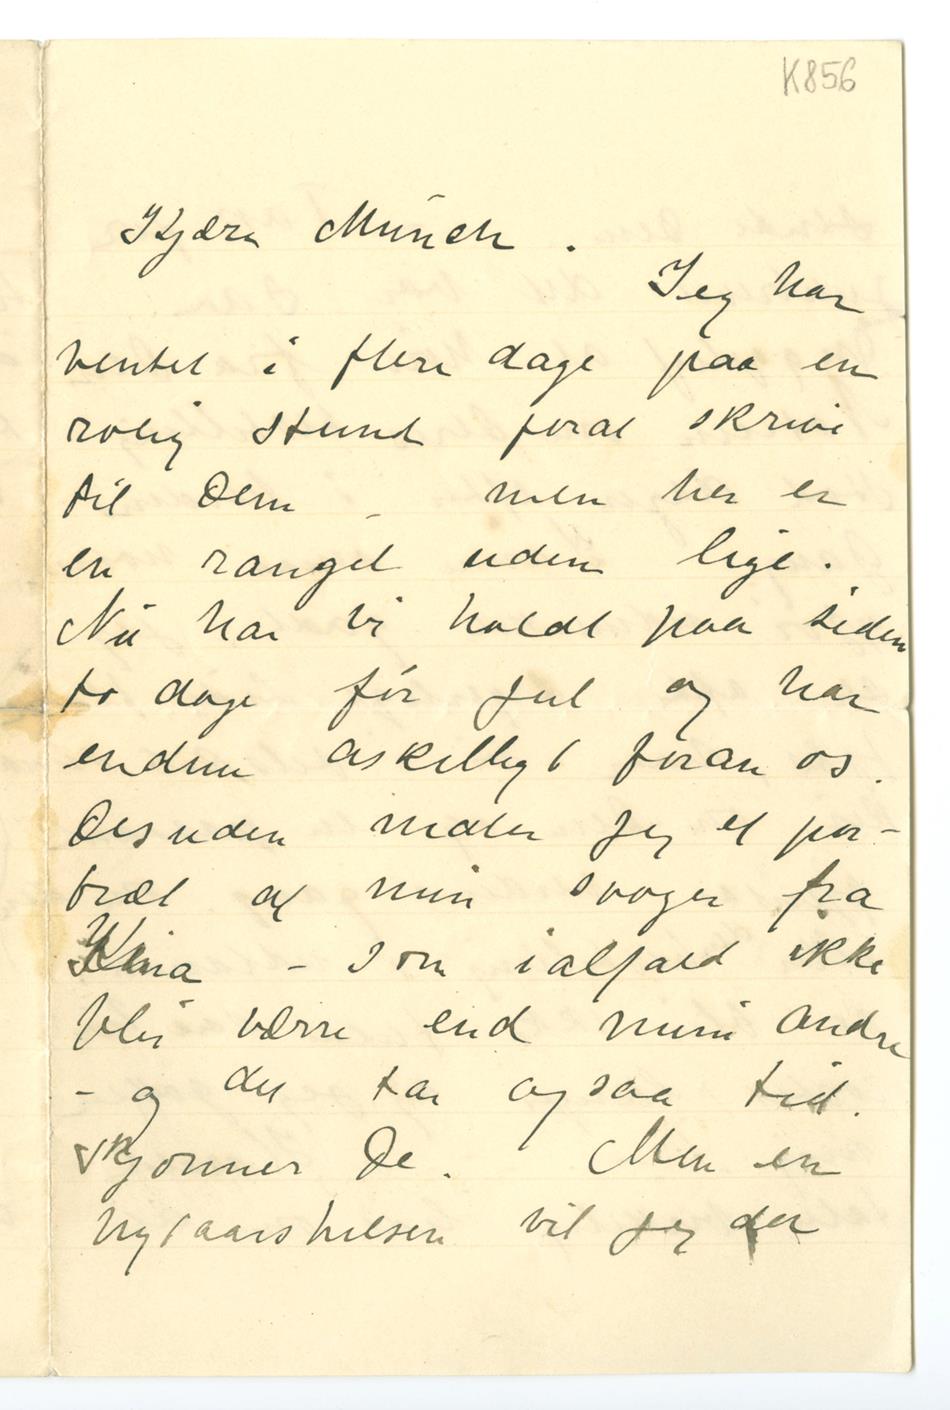 K856
Kjære Munch.
Jeg har
ventet i flere dage paa en
rolig stund forat skrive
til Dem – men her er
en rangel uden lige.
Nu har vi holdt paa siden
to dage før jul og har
endnu askelligt foran os.
Desuden maler jeg et por-
træt af min svoger fra
Kina – som ialfald ikke
blir værre end mine andre
– og det tar ogsaa tid.
skjønner De. Men en
nytaarshilsen vil jeg der